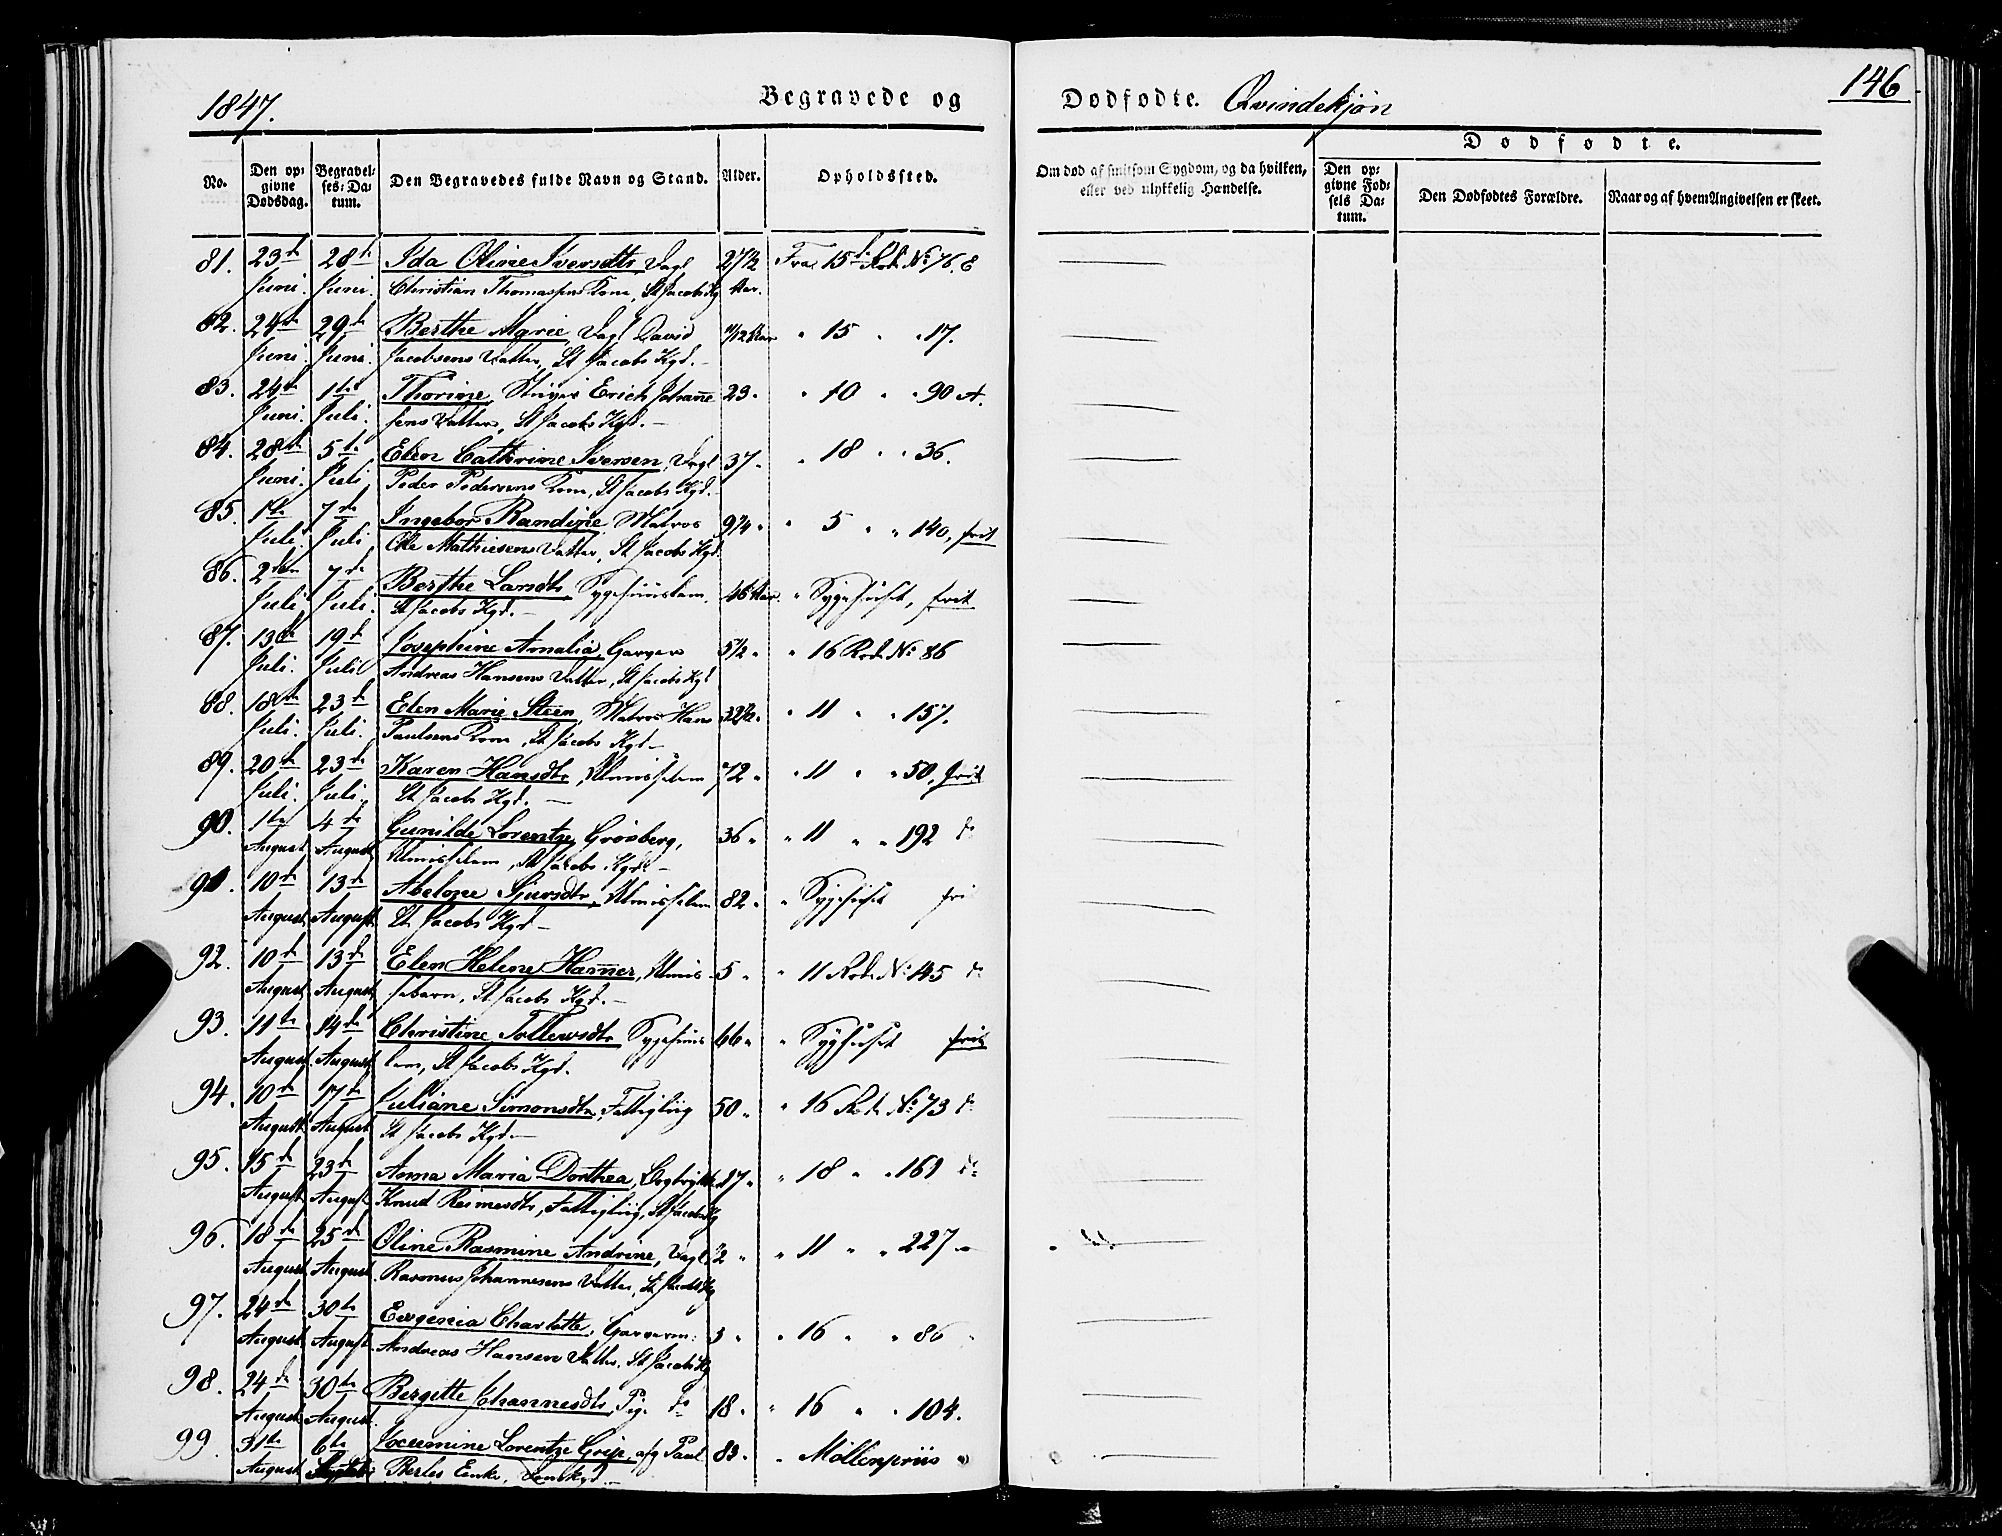 1847.
Begravede og
Dødfødte. Qvindekjøn
146
No.
Den opgivne Dødsdag.
Begravelses-Datum.
Den Begravedes fulde Navn og Stand.
Alder.
Opholdssted.
Om død af smitsom Sygdom, og da hvilken, eller ved ulykkelig Hændelse.
Dødfødte.
Den opgivne Fødsels Datum.
Den Dødfødtes Forældre.
Naar og af hvem Angivelsen er skeet.
81. 23d 28d Ida Oline Iversdtr, Dagl 27½ Fra 15d Rode No 76. E
Juni. Juni. Christian Thomassens Kone, St Jacobs Kg. Aar.
82. 24d 29d Berthe Marie, Dagl David 11/12 Aar " 15 " " 17.
Juni Juni. Jacobsens Datter, St Jacobs Kgd. —
83. 24d 1ste Thorine, Erich Johanne 23 " " 10 " " 90 A.
Juni. Juli. sens Datter, St Jacobs Kgd. —
84. 28d 5te Elen Cathrine Iversen, Dagl 37 " " 18 " " 36.
Juni. Juli Peder Pedersens Kone, St Jacobs Kgd. —
85. 1ste 7de Ingebor Randine Matros 9¼ " " 5 " " 140, frit
Juli. Juli Ole Mathiesens Datter, St Jacobs Kgd.
86. 2den 7de Berthe Larsdtr Sygehuuslem. 46 Aar. " Sygehuset, frit
Juli Juli. St Jacobs Kgd. —
87. 13de 19d Josephine Amalia, Garver 5½ " " 16 Rode No 86
Juli. Juli Andreas Hansens Datter, St Jacobs Kgd
88. 18de 23d Elen Marie Steen, Matros Hans 32½ " " 11 " " 157.
Juli. Juli. Paulsens Kone, St Jacobs Kgd —
89. 20d 23de Karen Hansdtr, Almisselem 72 " " 11 " " 50, frit
Juli. Juli. St Jacobs Kgd. —
90. 1ste 4de Gunilde Lorentze Grønberg, 36 " " 11 " " 192 do
August August Almisselem, St Jacobs Kgd. —
91. 10de 13de Abelone Sjursdtr, Almisselem 82 " " Sygehuset fri
August August. St Jacobs Kgd —
92. 10d 13d Elen Helene Hamer, Almis 5 " " 11 Rode No 145 do
August August sebarn, St Jacobs Kgd. —
93. 11te 14de Christine Tollewsdtr Sygehuus 66 " " Syghuset frit
August August lem, St Jacobs Kgd.
94. 10de 17de Juliane Simonsdtr, Fattiglig 50 " " 16 Rode No 73 do
August August St Jacobs Kgd —
95. 15d 23d Anna Maria Dorthea, 17 " " 18 " " 161 do
August August Knud Reimersdtr, Fattiglig, St Jacobs Kg
96. 18de 25de Oline Rasmine Andrine, Dagl. ½ " " 11 " " 227 "
August August Rasmus Johannesens Datter, St Jacobs Kg
97. 24de 30te Eugenia Charlotte, Garverm: 3 " " 16 " " 86
August August Andreas Hansen Datter, St Jacobs Kg
98. 24de 30te Bergitte Johannesdtr, Pige do 18 " " 16 " " 104.
August August.
99. 31te 6te Jocumine Lorentze Grip, afg Paul 83 " " Møllenpriis "
August Septbr Berles Enke, Domkgd —